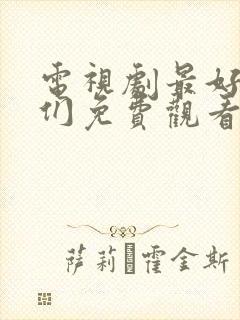 電視劇最好
们免費觀看
萨莉·霍金斯